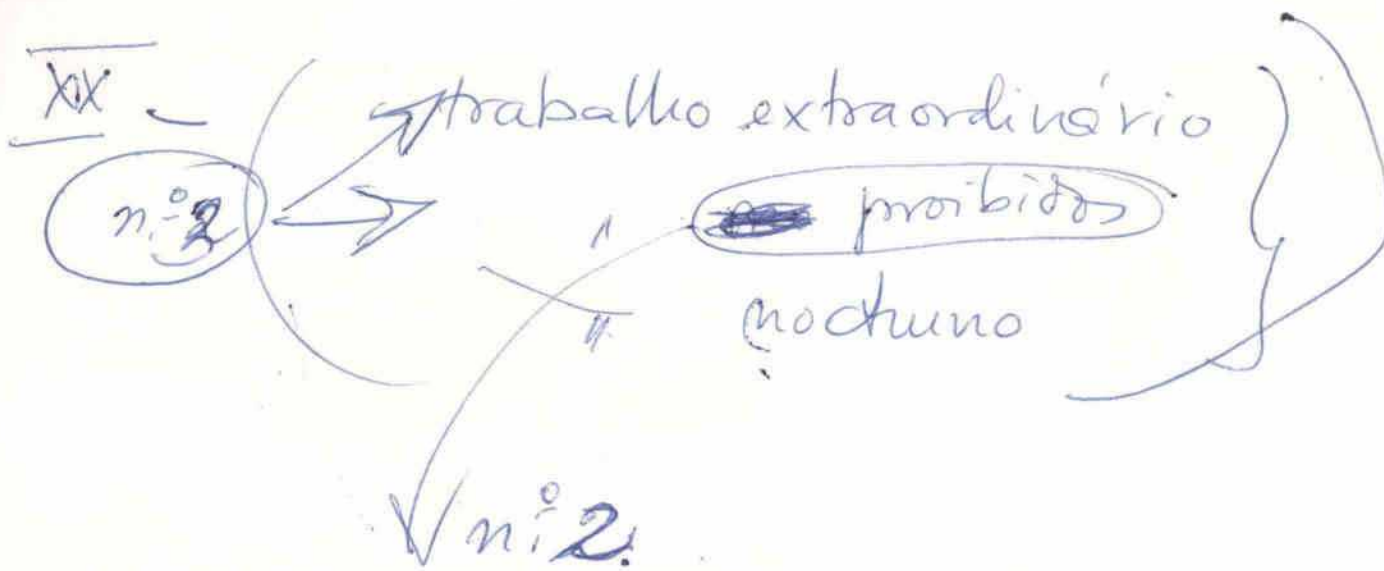 XX -
trabalho extraordinário
n.º 2
" proibidos
" nocturno
n.º 2.